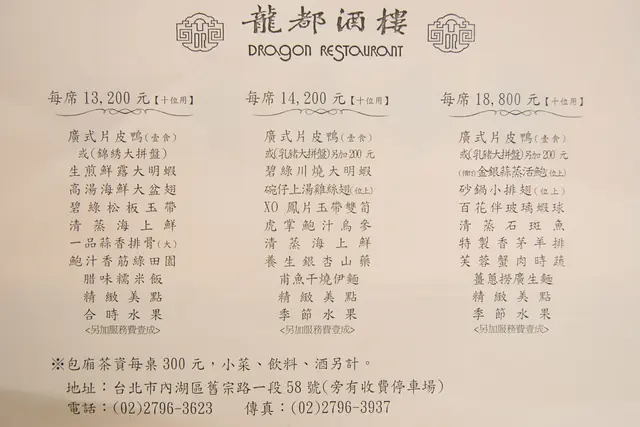 龍都酒樓
Dragon Restaurant
每席 13,200 元【十位用】
廣式片皮鴨(壹食)
或(錦綉大拼盤)
生煎鮮露大明蝦
高湯海鮮大盆翅
碧綠松板玉帶
清蒸海上鮮
一品蒜香排骨(大)
鮑汁香筋綠田園
腊味糯米飯
精緻美點
合時水果
<另加服務費壹成>
每席 14,200 元【十位用】
廣式片皮鴨(壹食)
或(乳豬大拼盤)另加200元
碧綠川燒大明蝦
碗仔上湯雞絲翅(位上)
XO鳳片玉帶雙筍
虎掌鮑汁烏參
清蒸海上鮮
養生銀杏山藥
甫魚干燒伊麵
精緻美點
季節水果
<另加服務費壹成>
每席 18,800 元【十位用】
廣式片皮鴨(壹食)
或(乳豬大拼盤)另加200元
金銀蒜蒸活鮑(位上)
砂鍋小排翅(位上)
百花伴玻璃蝦球
清蒸石斑魚
特製香茅羊排
芙蓉蟹肉時蔬
薑蔥撈廣生麵
精緻美點
季節水果
<另加服務費壹成>
※包廂茶資每桌300元,小菜、飲料、酒另計。
地址:台北市內湖區舊宗路一段58號(旁有收費停車場)
電話:(02)2796-3623 傳真:(02)2796-3937